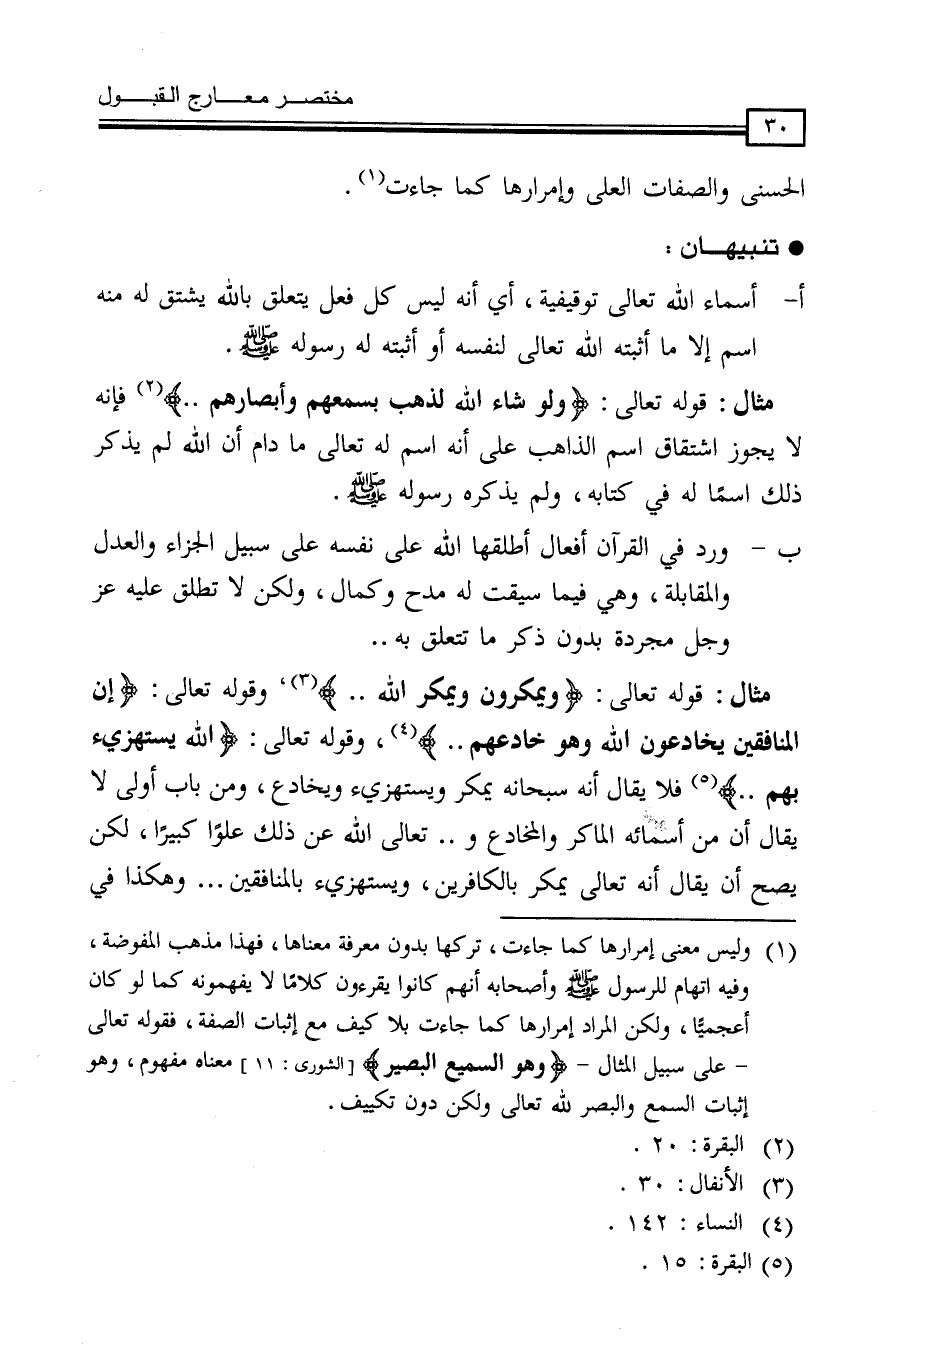 مختصر معارج القبول
٣٠
الحسنى والصفات العلى وإمرارها كما جاءت(١) .
● تنبيهان :
أ- أسماء الله تعالى توقيفية ، أي أنه ليس كل فعل يتعلق بالله يشتق له منه
اسم إلا ما أثبته الله تعالى لنفسه أو أثبته له رسوله ﷺ .
مثال : قوله تعالى : ﴿ولو شاء الله لذهب بسمعهم وأبصارهم ..﴾(٢) فإنه
لا يجوز اشتقاق اسم الذاهب على أنه اسم له تعالى ما دام أن الله لم يذكر
ذلك اسمًا له في كتابه ، ولم يذكره رسوله ﷺ .
ب - ورد في القرآن أفعال أطلقها الله على نفسه على سبيل الجزاء والعدل
والمقابلة ، وهي فيما سيقت له مدح وكمال ، ولكن لا تطلق عليه عز
وجل مجردة بدون ذكر ما تتعلق به ..
مثال : قوله تعالى : ﴿ويمكرون ويمكر الله .. ﴾(٣)، وقوله تعالى : ﴿إن
المنافقين يخادعون الله وهو خادعهم .. ﴾(٤) ، وقوله تعالى : ﴿الله يستهزيء
بهم ..﴾(٥) فلا يقال أنه سبحانه يمكر ويستهزيء ويخادع ، ومن باب أولى لا
يقال أن من أسمائه الماكر والمخادع و .. تعالى الله عن ذلك علوًا كبيرًا ، لكن
يصح أن يقال أنه تعالى يمكر بالكافرين ، ويستهزيء بالمنافقين ... وهكذا في
(١) وليس معنى إمرارها كما جاءت ، تركها بدون معرفة معناها ، فهذا مذهب المفوضة ،
وفيه اتهام للرسول ﷺ وأصحابه أنهم كانوا يقرءون كلامًا لا يفهمونه كما لو كان
أعجميًّا ، ولكن المراد إمرارها كما جاءت بلا كيف مع إثبات الصفة ، فقوله تعالى
- على سبيل المثال - ﴿وهو السميع البصير﴾ [الشورى : ١١ ] معناه مفهوم ، وهو
إثبات السمع والبصر لله تعالى ولكن دون تكييف .
(٢) البقرة : ٢٠ .
(٣) الأنفال : ٣٠ .
(٤) النساء : ١٤٢ .
(٥) البقرة : ١٥ .